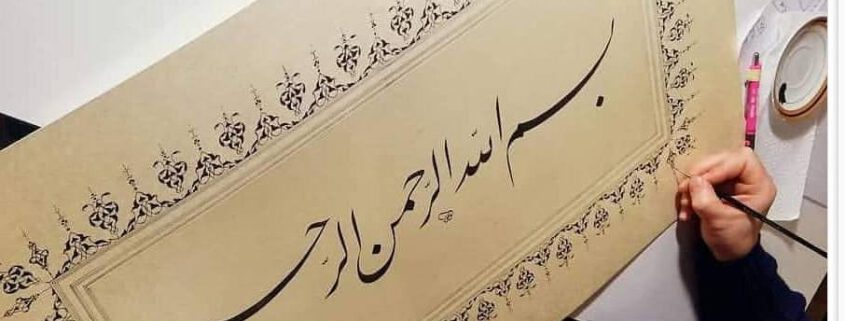 بسم اللّه الرَّحمن الرَّحـ